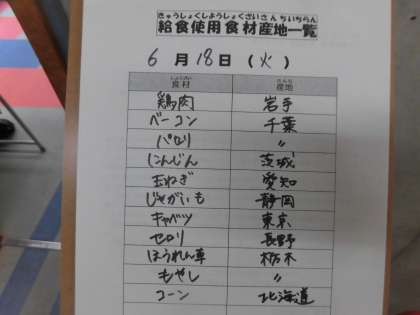 きゅうしょくしようしょくざいさんちいちらん
給食使用食材産地一覧
6月18日(火)
しょくざい さんち
食材 産地
鶏肉 岩手
ベーコン 千葉
パセリ 〃
にんじん 茨城
玉ねぎ 愛知
じゃがいも 静岡
キャベツ 東京
セロリ 長野
ほうれん草 栃木
もやし 〃
コーン 北海道